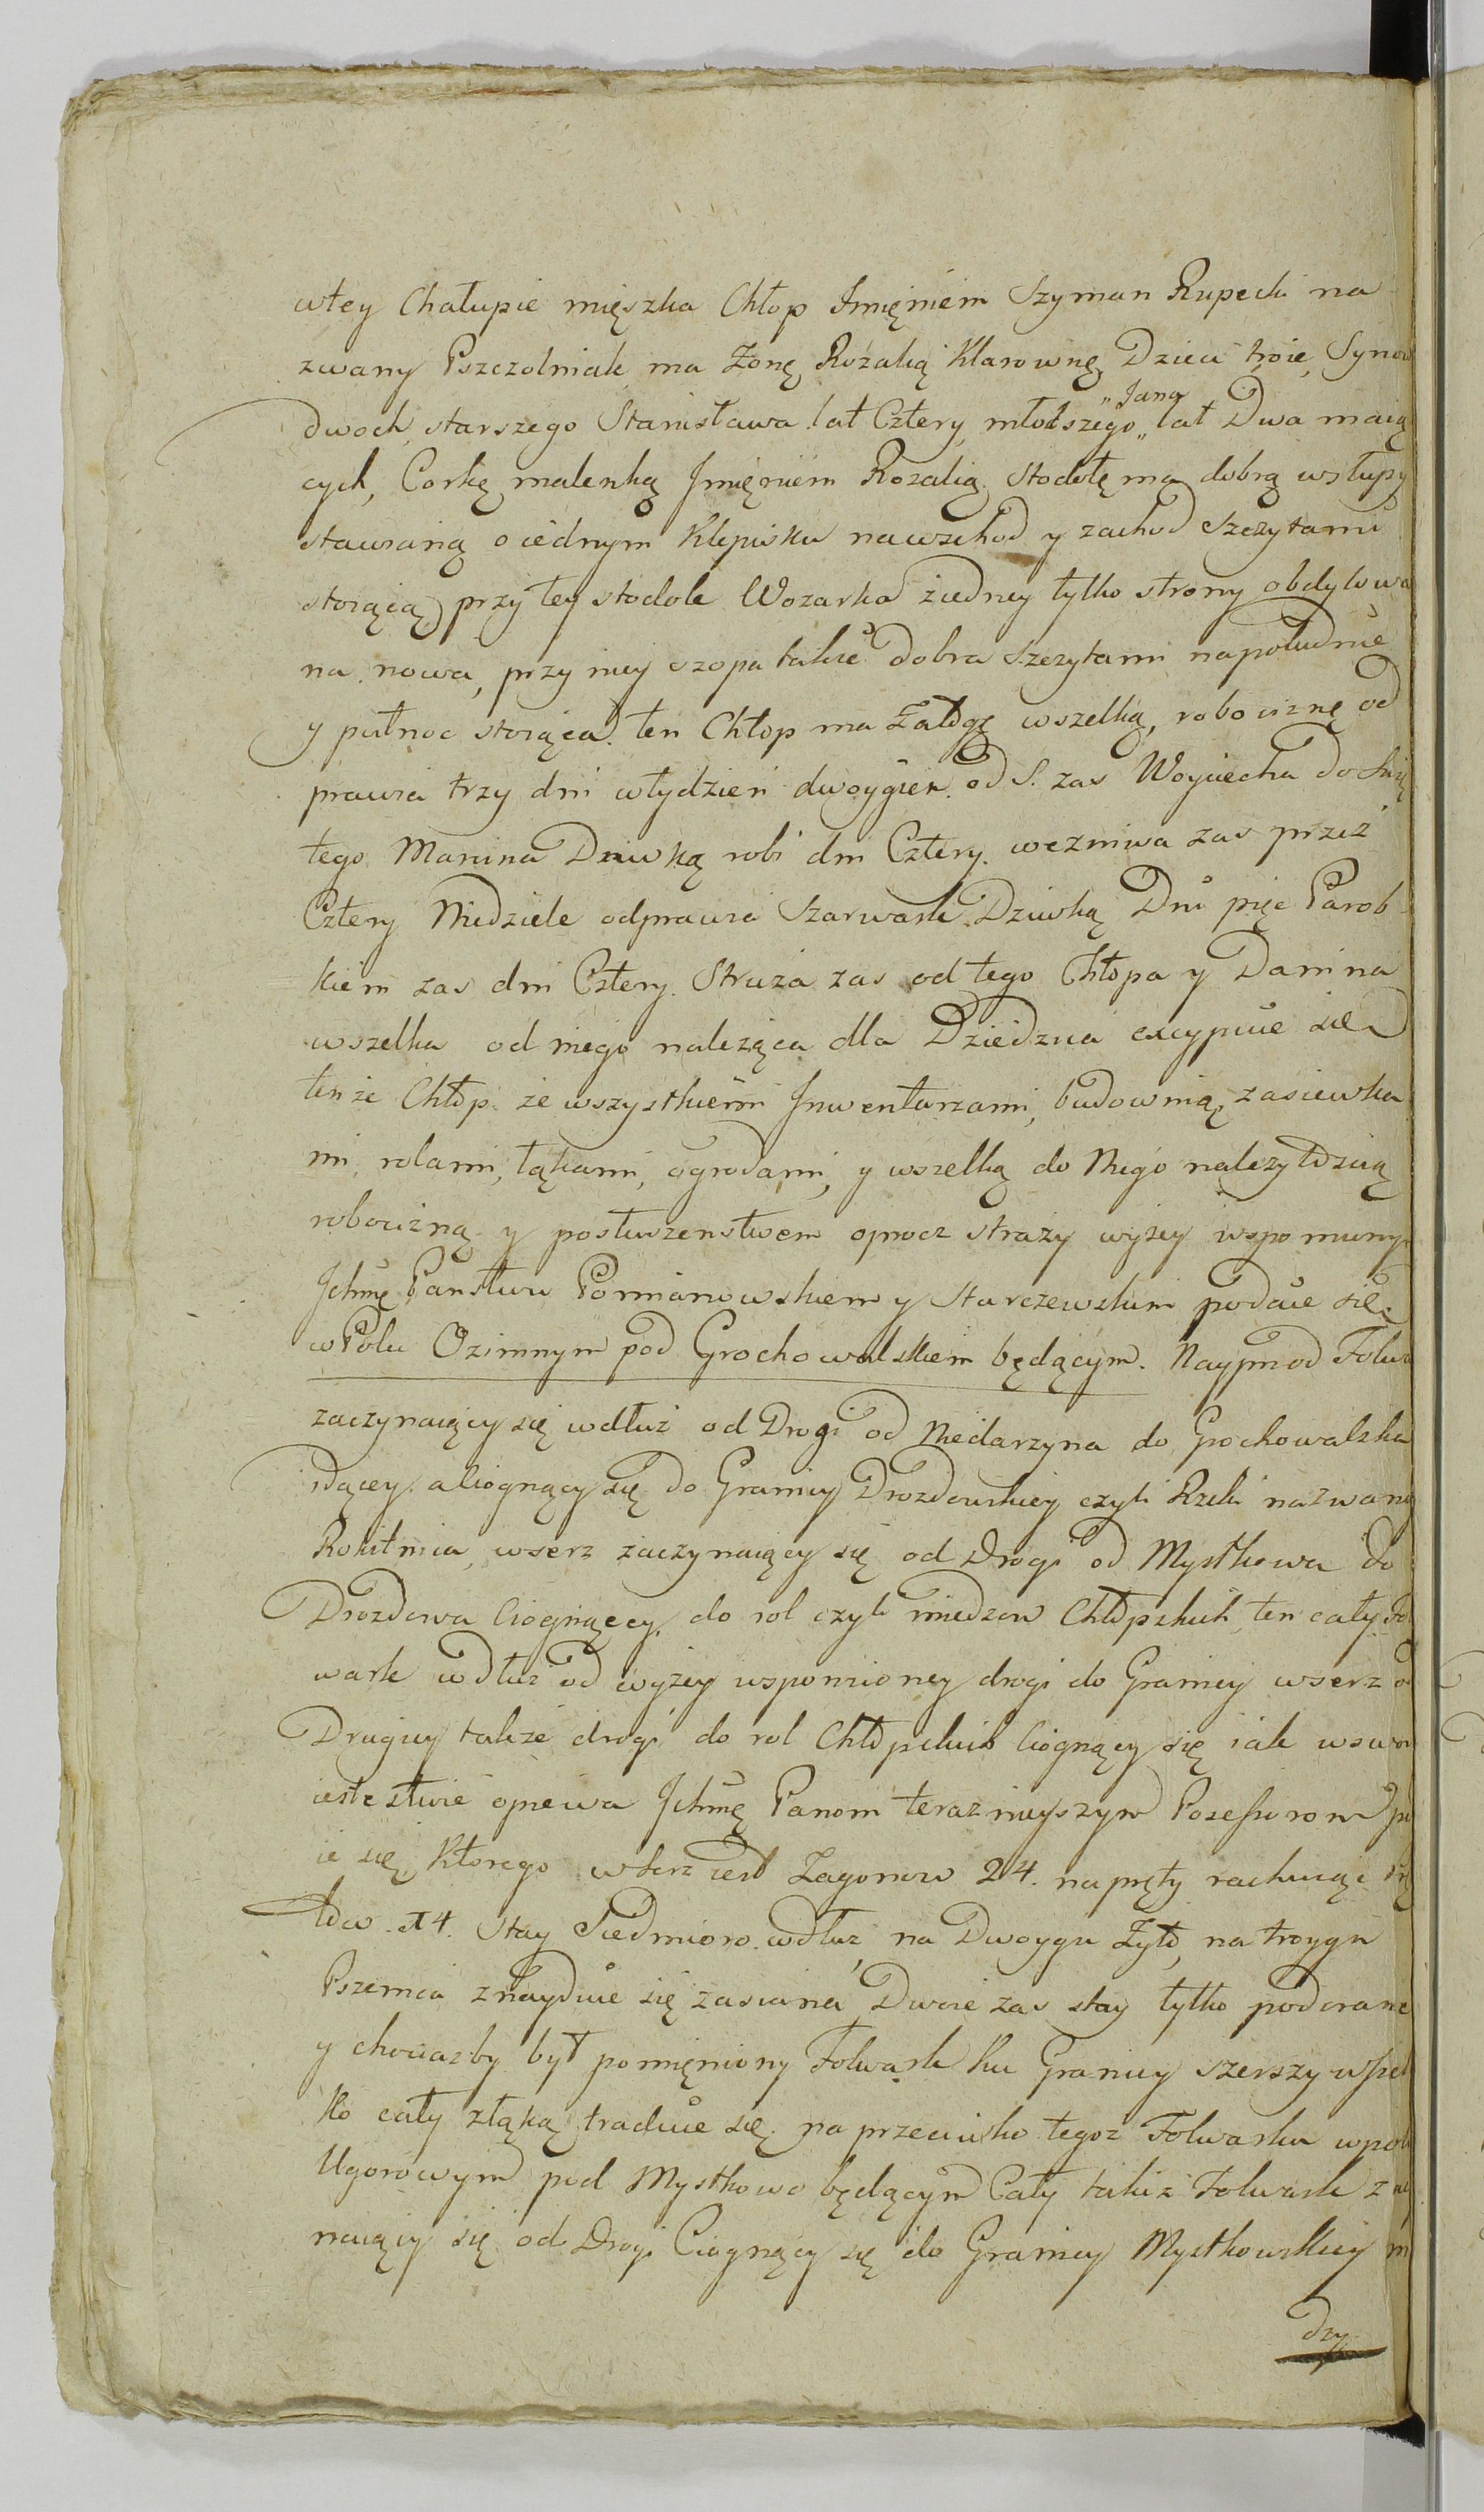 wtey Chałupie mięszka Chłop Jmięniem Szyman Rupecki na
zwany Pszczolniak ma Zonę Rozalią Klarownę Dzieci troie, Synow
dwoch, starszego Stanisława lat Cztery, młodszego „Jana„ lat Dwa maią
cych, Corkę malenką Jmięniem Rozalią. Stodołę ma dobrą wsłupy
stawianą o iednym Klepisku nawschod y zachod Szczytami
stoiącą, przy tey stodole Wozarka ziedney tylko strony obdylowa
na nowa, przy niey szopa takze dobra Szczytami napołudnie
y pułnoc stoiąca. ten Chłop ma Załogę wszelką, robociznę od
prawia trzy dni wtydzień dwoygiem. od S. zas Woyciecha do Swię
tego Marcina Dziwką robi dni Cztery. wezniwa zas przez
Cztery Niedziele odprawia Szarwark Dziwką Dni pięc Parob
kiem zas dni Cztery. Straza zas od tego Chłopa y Danina
wszelka od niego naleząca dla Dziedzica excypuie się
tenze Chłop ze wszystkiemi Jnwentarzami, budownią, zasiewka
mi, rolami, łąkami, ogrodami, y wszelką do Niego należytością
robocizną y posłuszenstwem oprocz strazy wyzey wspomniney
Jchmę Panstwu Pomianowskiem y Starczewskim podaie się.
wPolu Ozimnym pod Grochowalskiem będącym. Nayprzod Folwa
zaczynaiący się wdłuż od Drogi od Niedarzyna do Grochowalska
idącey. aCiognący się do Granicy Drozdowskiey czyli Rzeki nazwaney
Rokitnica wserz zaczynaiący się od Drogi od Mystkowa do
Drozdowa Ciognącey, do rol czyli miedzow Chłopskich, ten cały Fol
wark wdłuż od wyzey wspomnioney drogi do Granicy wserz od
Drugiey takze drogi do rol Chłopskich Ciognący się iak wswoi
iestestwie opiewa Jchmę Panom terazniejszym Possessorom po
ie się, Ktorego wszerz iest Zagonow 24. napręty rachuiąc
tow. 14. Stay Siedmioro. wdłuż na Dwoygu Zyto, na troygu
Pszenica znayduie się zasiana, Dwoie zas stay tylko podorane
y chociazby był pomięniony Folwark ku Granicy szerszy
ko cały złąką traduie się. na przeciwko tegoz Folwarku wpolu
Ugorowym pod Mystkowo będącym Cały takze Folwark zaczy
naiący się od Drogi Ciognący się do Granicy Mystkowskiey